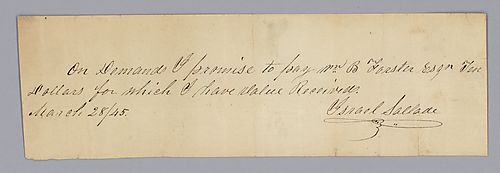 On Demand I promise to pay Wm B Foaster Esqr Ten
Dollars for which I have Value Received
March 28/45.
Israel Sallade